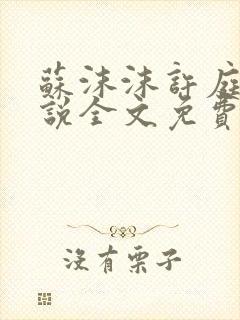 蘇沫沫許庭
說全文免費
沒有栗子